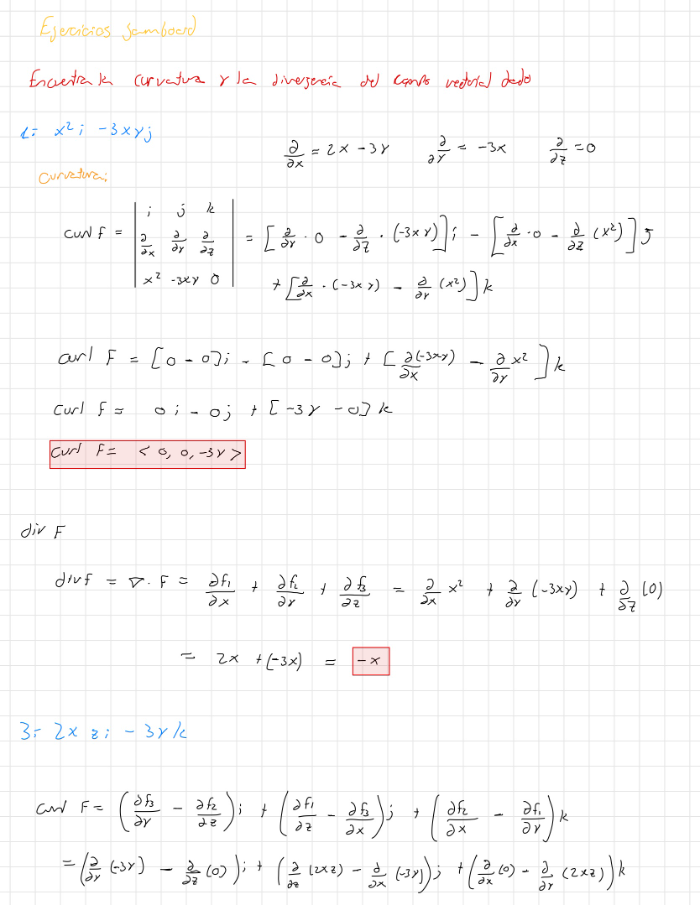 Ejercicios Jamboard
Encuentra la curvatura y la divergencia del campo vectorial dado
1= x² i - 3xy j
∂/∂x = 2x - 3y ∂/∂y = -3x ∂/∂z = 0
curvatura;
curl F = | i j k ; ∂/∂x ∂/∂y ∂/∂z ; x² -3xy 0 | = [∂/∂y · 0 - ∂/∂z · (-3xy)] i - [∂/∂x · 0 - ∂/∂z (x²)] j
+ [∂/∂x · (-3xy) - ∂/∂y (x²)] k
curl F = [0 - 0] i - [0 - 0] j + [∂(-3xy)/∂x - ∂/∂y x²] k
curl F = 0 i - 0 j + [-3y - 0] k
curl F = <0, 0, -3y>
div F
div F = ∇ · F = ∂f₁/∂x + ∂f₂/∂y + ∂f₃/∂z = ∂/∂x x² + ∂/∂y (-3xy) + ∂/∂z (0)
= 2x + (-3x) = -x
3= 2x z i - 3y k
curl F = (∂f₃/∂y - ∂f₂/∂z) i + (∂f₁/∂z - ∂f₃/∂x) j + (∂f₂/∂x - ∂f₁/∂y) k
= (∂/∂y (-3y) - ∂/∂z (0)) i + (∂/∂z (2xz) - ∂/∂x (-3y)) j + (∂/∂x (0) - ∂/∂y (2xz)) k